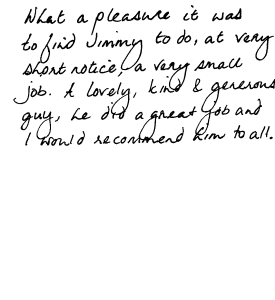 What a pleasure it was
to find Jimmy to do, at very
short notice, a very small
job. A lovely, kind & generous
guy, he did a great job and
I would recommend him to all.